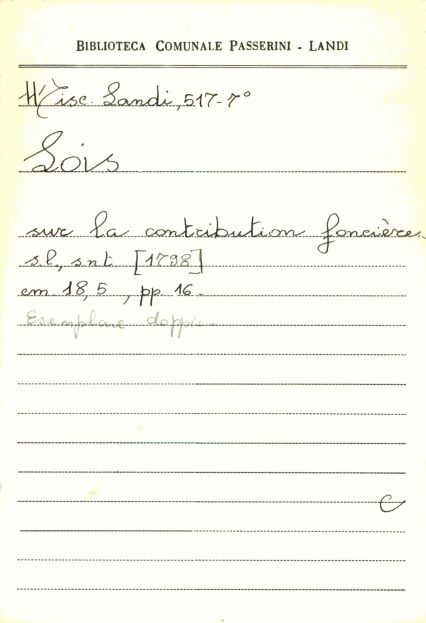 BIBLIOTECA COMUNALE PASSERINI - LANDI
Misc. Landi, 517-7°
Lois
sur la contribution foncière.
s.l., snt [1798]
cm. 18,5 , pp. 16.
Esemplare doppio.
C